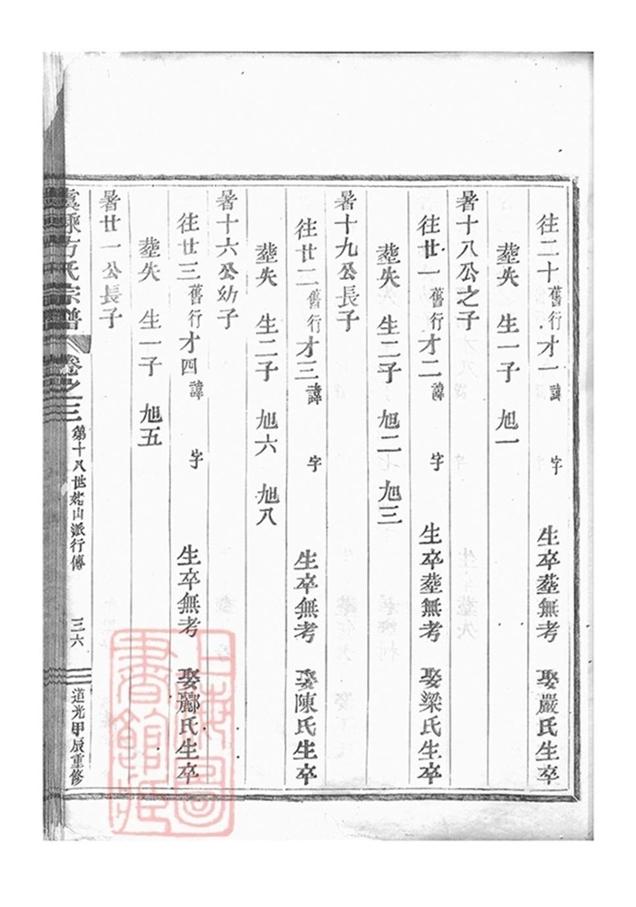 往二十舊行才一諱 字 生卒塟無考 娶嚴氏生卒
塟失 生一子 旭一
暑十八公之子
往廿一舊行才二諱 字 生卒塟無考 娶梁氏生卒
塟失 生二子 旭二 旭三
暑十九公長子
往廿二舊行才三諱 字 生卒無考 娶陳氏生卒
塟失 生二子 旭六 旭八
暑十六公幼子
往廿三舊行才四諱 字 生卒無考 娶酈氏生卒
塟失 生一子 旭五
暑廿一公長子
方氏宗譜 卷之三 第十八世 山派行傳 三六 道光甲辰重修
上海圖書館藏